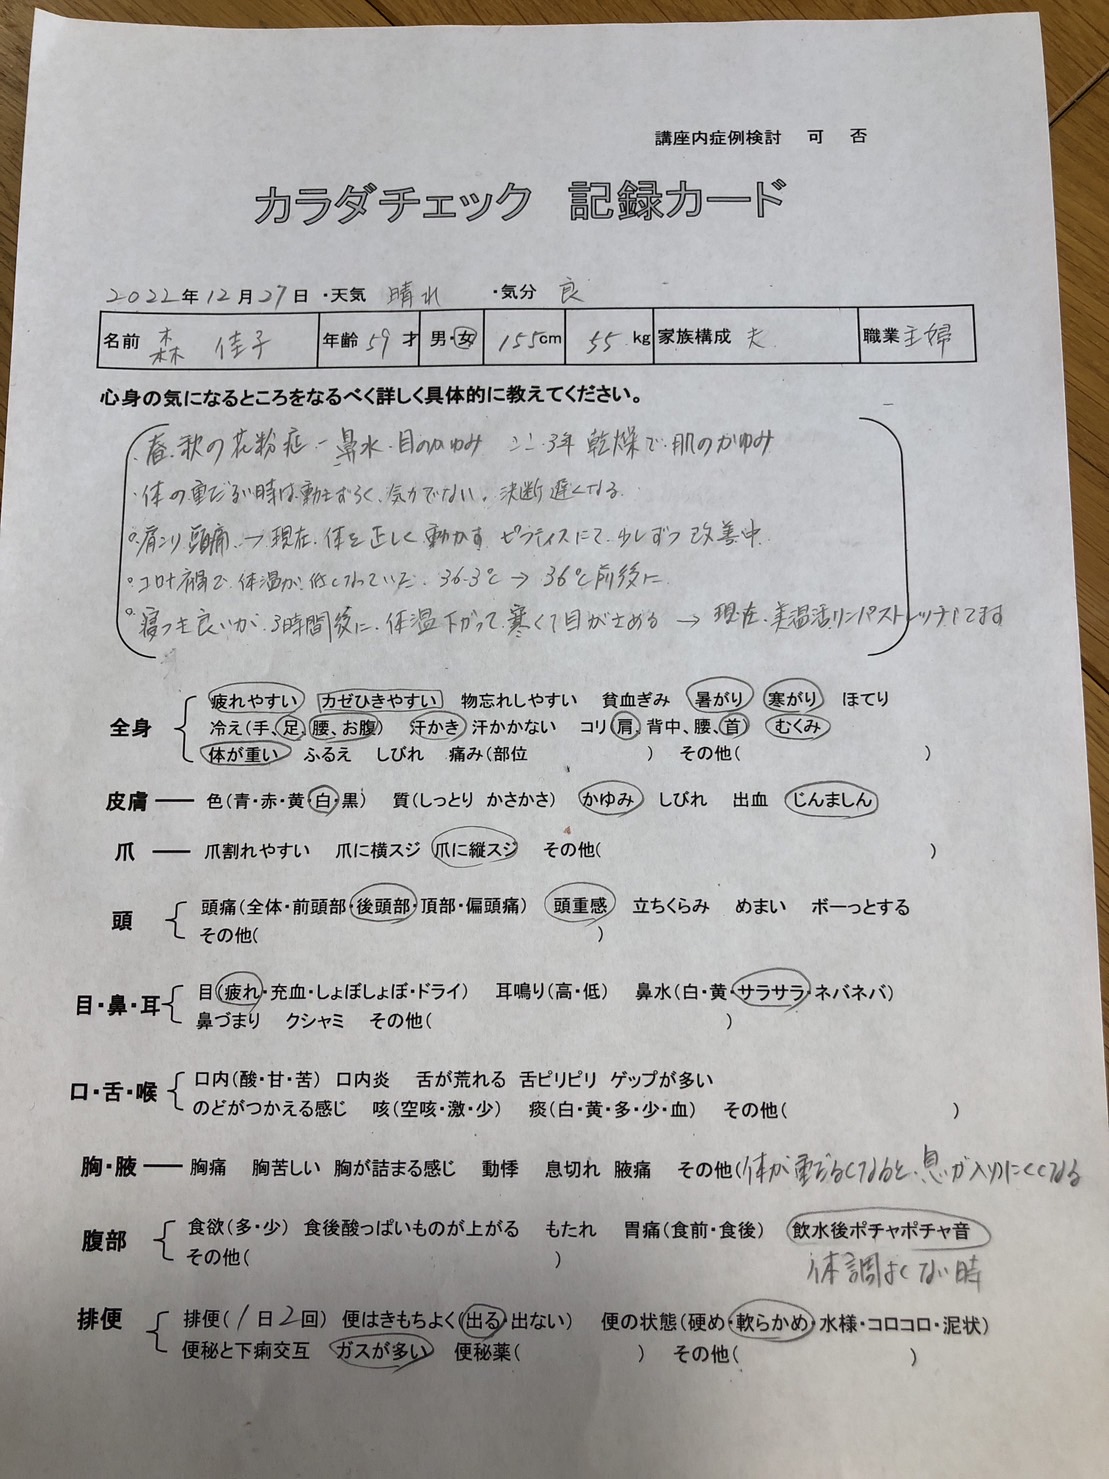 講座内症例検討 可 否
カラダチェック 記録カード
2022年12月27日 ・天気 晴れ ・気分 良
名前 森 佳子 年齢 59 才 男・女 155cm 55 kg 家族構成 夫 職業 主婦
心身の気になるところをなるべく詳しく具体的に教えてください。
・春、秋の花粉症－鼻水・目のかゆみ ここ3年 乾燥で肌のかゆみ
・体の重だるい時は動きずらく、気力でない。決断遅くなる
○肩こり 頭痛 → 現在、体を正しく動かす ピラティスにて 少しずつ改善中
○コロナ禍で 体温が低くなっていた 36.3℃ → 36℃前後に
○寝つき良いが、3時間後に、体温下がって、寒くて目がさめる → 現在、美温活リンパストレッチしてます
全身 疲れやすい カゼひきやすい 物忘れしやすい 貧血ぎみ 暑がり 寒がり ほてり
冷え(手、足、腰、お腹) 汗かき 汗かかない コリ(肩、背中、腰、首) むくみ
体が重い ふるえ しびれ 痛み(部位 ) その他( )
皮膚 ― 色(青・赤・黄・白・黒) 質(しっとり かさかさ) かゆみ しびれ 出血 じんましん
爪 ― 爪割れやすい 爪に横スジ 爪に縦スジ その他( )
頭 頭痛(全体・前頭部・後頭部・頂部・偏頭痛) 頭重感 立ちくらみ めまい ボーっとする
その他( )
目・鼻・耳 目(疲れ・充血・しょぼしょぼ・ドライ) 耳鳴り(高・低) 鼻水(白・黄・サラサラ・ネバネバ)
鼻づまり クシャミ その他( )
口・舌・喉 口内(酸・甘・苦) 口内炎 舌が荒れる 舌ピリピリ ゲップが多い
のどがつかえる感じ 咳(空咳・激・少) 痰(白・黄・多・少・血) その他( )
胸・腋 ― 胸痛 胸苦しい 胸が詰まる感じ 動悸 息切れ 腋痛 その他(体が重だるくなると、息が入りにくくなる
腹部 食欲(多・少) 食後酸っぱいものが上がる もたれ 胃痛(食前・食後) 飲水後ポチャポチャ音
その他( ) 体調よくない時
排便 排便(1日2回) 便はきもちよく(出る・出ない) 便の状態(硬め・軟らかめ・水様・コロコロ・泥状)
便秘と下痢交互 ガスが多い 便秘薬( ) その他( )